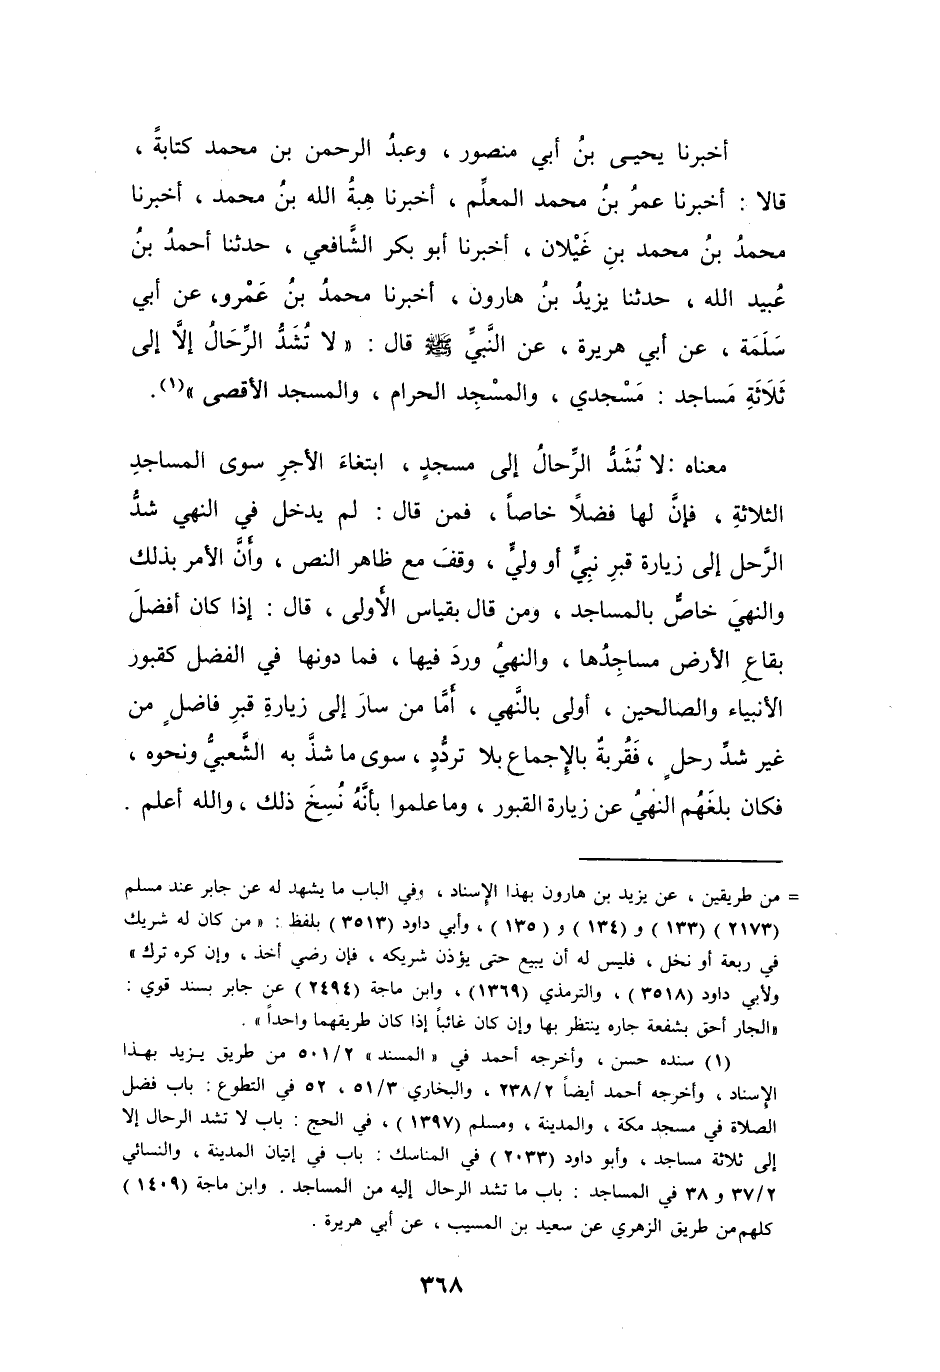 أخبرنا يحيـى بنُ أبي منصور ، وعبدُ الرحمن بن محمد كتابةً ،
قالا : أخبرنا عمرُ بنُ محمد المعلِّم ، أخبرنا هِبةُ الله بنُ محمد ، أخبرنا
محمدُ بنُ محمد بنِ غَيْلان ، أخبرنا أبو بكر الشَّافعي ، حدثنا أحمدُ بنُ
عُبيد الله ، حدثنا يزيدُ بنُ هارون ، أخبرنا محمدُ بنُ عَمْرو، عن أبي
سَلَمَة ، عن أبي هريرة ، عن النَّبيِّ ﷺ قال : « لا تُشَدُّ الرِّحَالُ إلاَّ إلى
ثَلَاثَةِ مَساجد : مَسْجدي ، والمسْجِد الحرام ، والمسجد الأقصى »(١).
معناه :لا تُشَدُّ الرِّحالُ إلى مسجدٍ ، ابتغاءَ الأجرِ سوى المساجدِ
الثلاثةِ ، فإنَّ لها فضلًا خاصاً ، فمن قال : لم يدخل في النهي شدُّ
الرَّحل إلى زيارة قبرِ نبيٍّ أو وليٍّ ، وقفَ مع ظاهر النص ، وأنَّ الأمر بذلك
والنهيَ خاصٌّ بالمساجد ، ومن قال بقياس الأَولى ، قال : إذا كان أفضلَ
بقاعِ الأرض مساجِدُها ، والنهيُ وردَ فيها ، فما دونها في الفضل كقبور
الأنبياء والصالحين ، أولى بالنَّهي ، أَمَّا من سارَ إلى زيارةِ قبرِ فاضلٍ من
غير شدِّ رحلٍ ، فَقُربةٌ بالإِجماع بلا تردُّدٍ ، سوى ما شذَّ به الشَّعبيُّ ونحوه ،
فكان بلغَهُم النهيُ عن زيارة القبور ، وما علموا بأنَّهُ نُسِخَ ذلك ، والله أعلم .
= من طريقين ، عن يزيد بن هارون بهذا الإِسناد ، وفي الباب ما يشهد له عن جابر عند مسلم
(٢١٧٣ ) (١٣٣ ) و (١٣٤ ) و ( ١٣٥ ) ، وأبي داود (٣٥١٣ ) بلفظ : « من كان له شريك
في ربعة أو نخل ، فليس له أن يبيع حتى يؤذن شريكه ، فإن رضي أخذ ، وإن كره ترك »
ولأبي داود (٣٥١٨ ) ، والترمذي (١٣٦٩) ، وابن ماجة (٢٤٩٤ ) عن جابر بسند قوي :
«الجار أحق بشفعة جاره ينتظر بها وإن كان غائباً إذا كان طريقهما واحداً» .
(١) سنده حسن ، وأخرجه أحمد في « المسند » ٥٠١/٢ من طريق يـزيد بهـذا
الإِسناد ، وأخرجه أحمد أيضاً ٢٣٨/٢ ، والبخاري ٥١/٣ ، ٥٢ في التطوع : باب فضل
الصلاة في مسجد مكة ، والمدينة ، ومسلم (١٣٩٧ ) ، في الحج : باب لا تشد الرحال إلا
إلى ثلاثة مساجد ، وأبو داود (٢٠٣٣ ) في المناسك : باب في إتيان المدينة ، والنسائي
٣٧/٢ و ٣٨ في المساجد : باب ما تشد الرحال إليه من المساجد . وابن ماجة (١٤٠٩ )
كلهم من طريق الزهري عن سعيد بن المسيب ، عن أبي هريرة .
٣٦٨